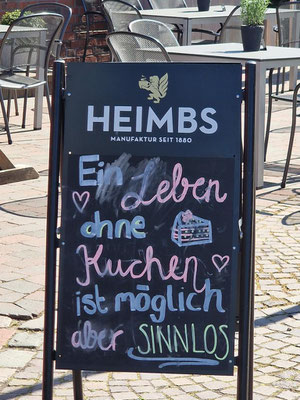 HEIMBS
MANUFAKTUR SEIT 1880
Ein Leben
ohne
Kuchen
ist möglich
aber SINNLOS